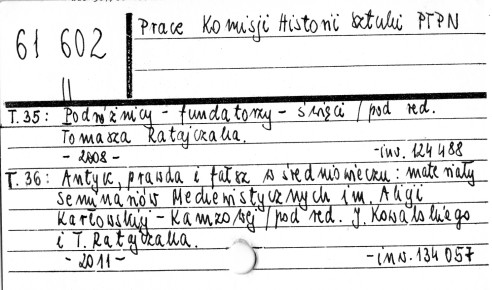 61 602
Prace Komisji Historii Sztuki PTPN
||
T. 35: Podróżnicy - fundatorzy - święci / pod red.
Tomasza Ratajczaka.
- 2008 -
- inv. 124 488
T. 36: Antyk, prawda i fałsz w średniowieczu: materiały
Seminariów Mediewistycznych im. Alicji
Karłowskiej - Kamzowej / pod red. J. Kowalskiego
i T. Ratajczaka.
- 2011 -
- inv. 134 057